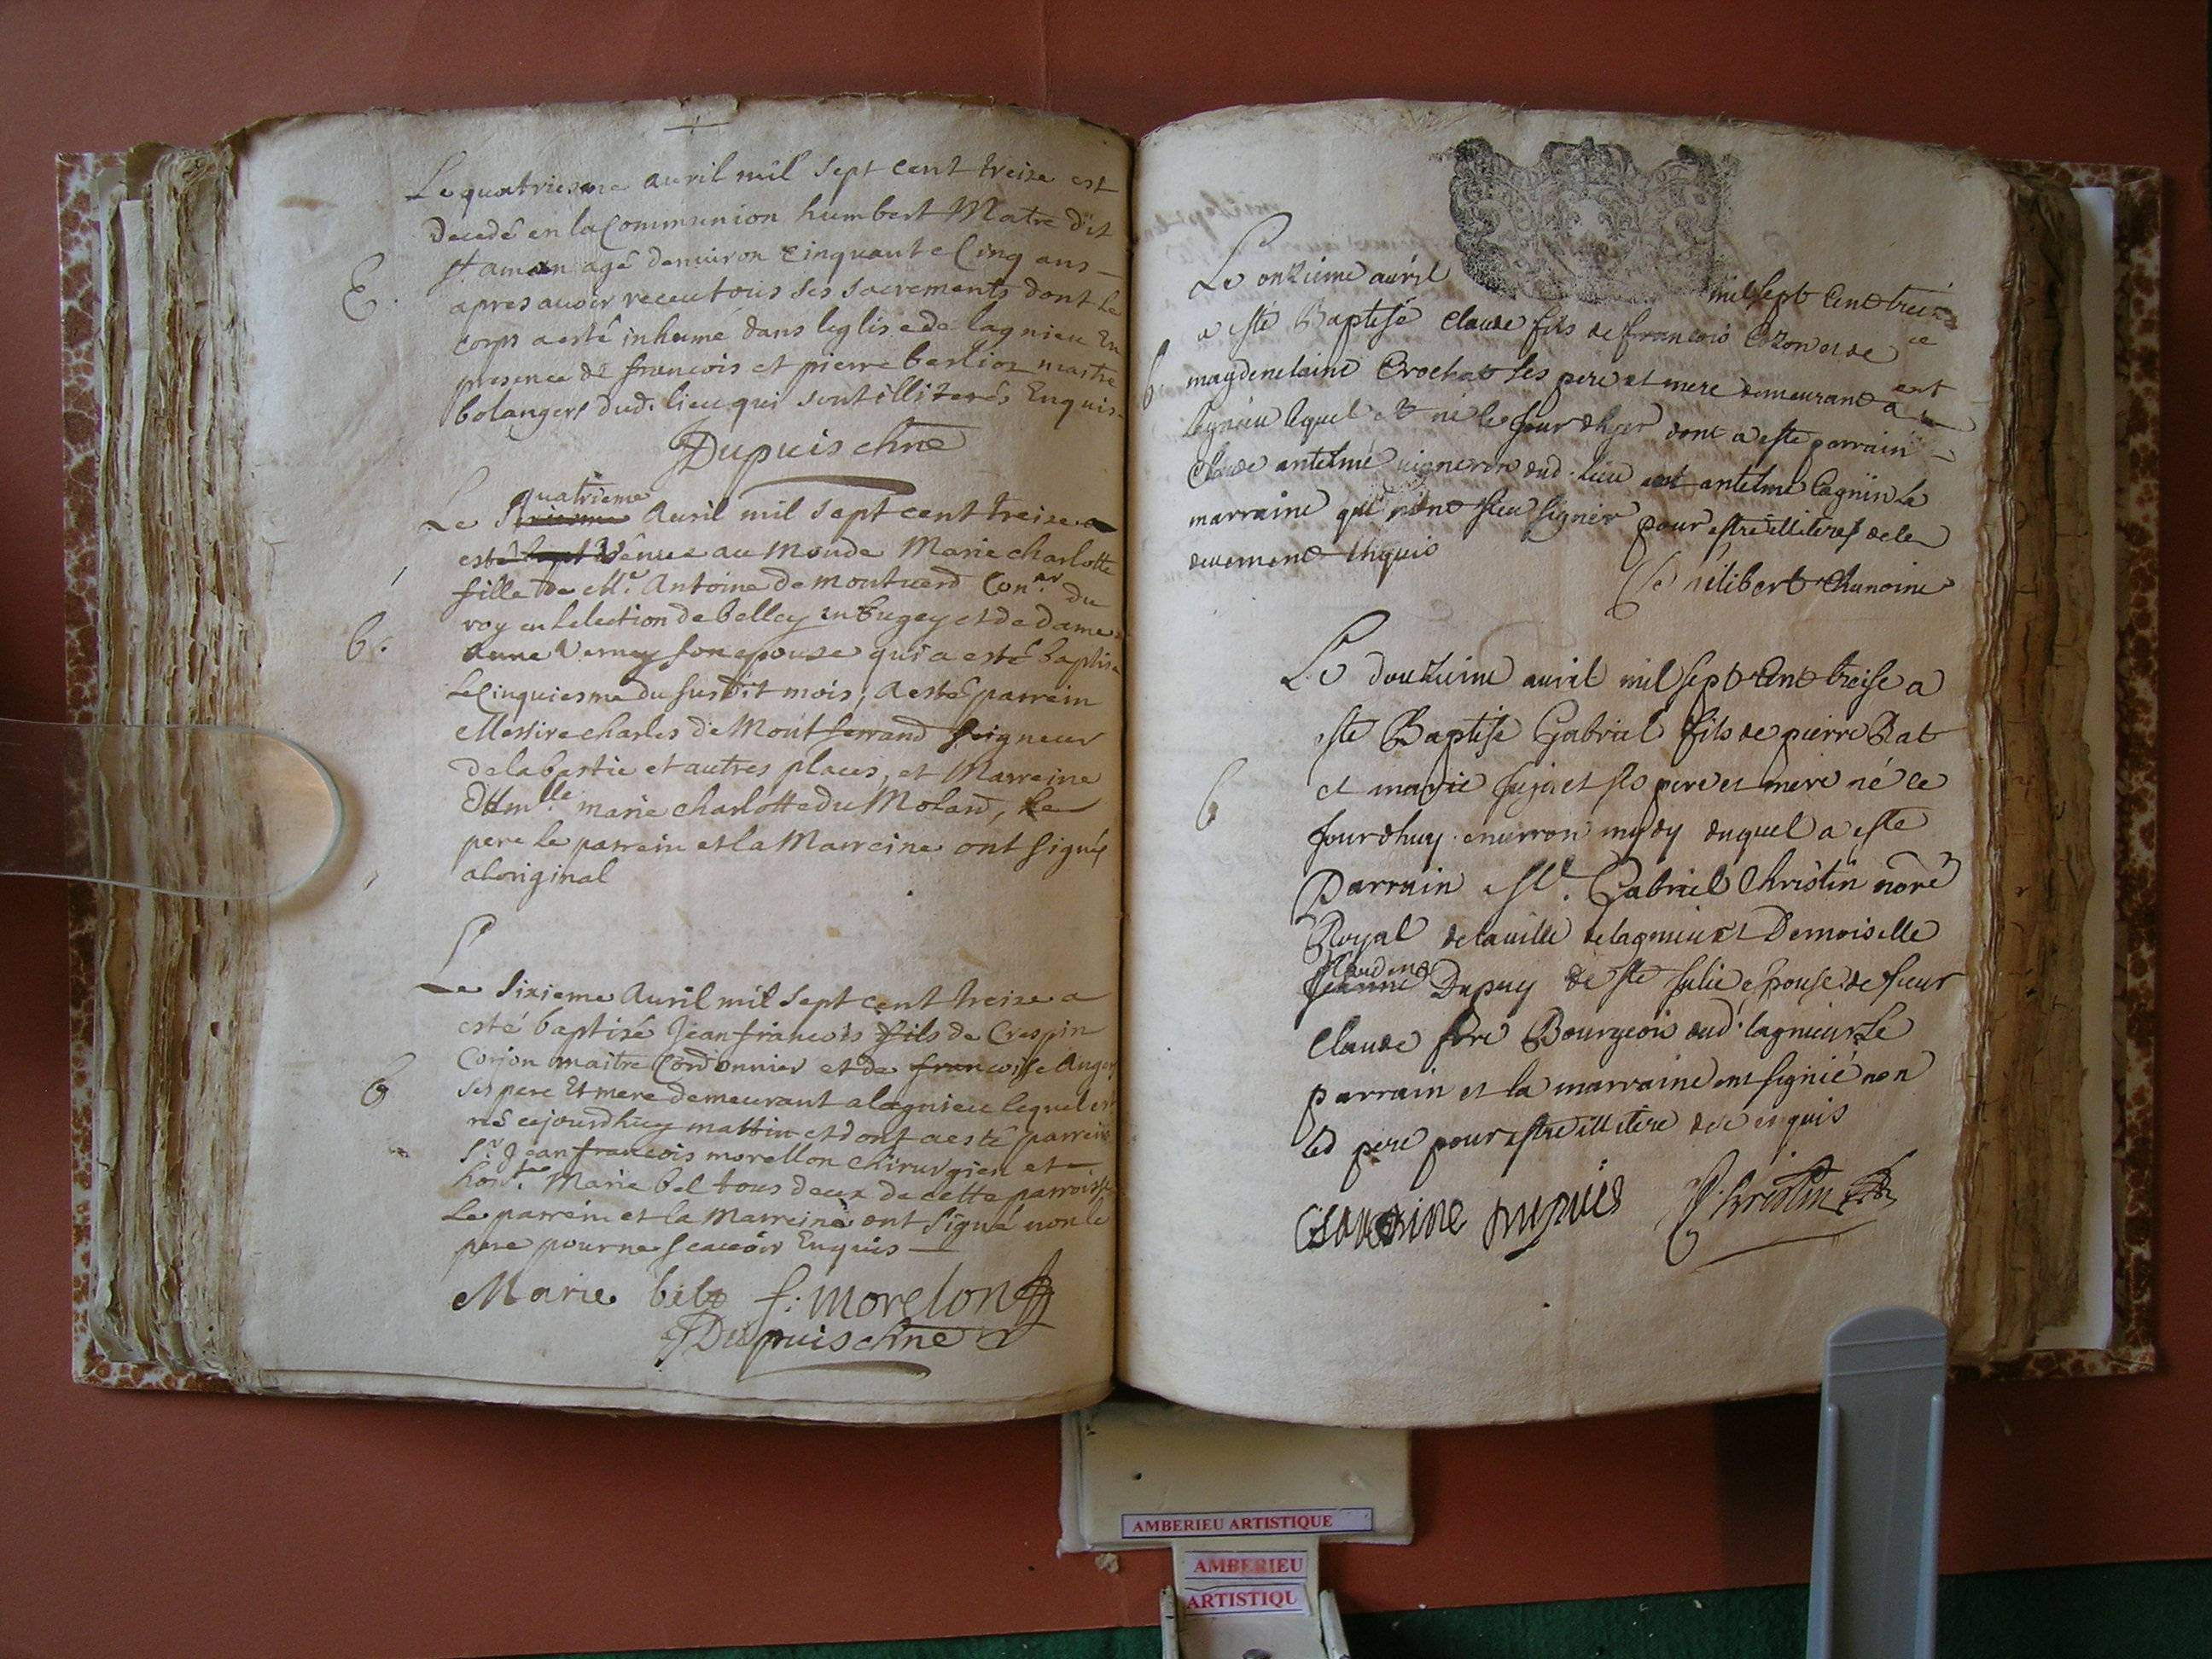 Le quatriesme auril mil sept cent treize est
decedé en la Communion humbert Matre dit
st aman agé denuiron cinquante Cinq ans
E.
apres auoir receu tous ses sacrements dont le
corps a esté inhumé dans leglise de lagnieu En
presence de francois et pierre berlioz maitre
bolangers dud. lieu qui sont illiterés Enquis
Dupuis chne
Le quatrieme auril mil sept cent treize a
esté venue au monde Marie charlotte
fille de Mr. Antoine de montuerd Conr. du
roy en lelection de belley en bugey et de dame
b.
anne Verney son epouse qui a esté baptisé
le Cinquiesme du susdit mois, a esté parrein
Messire charles de Montferrand seigneur
de la bastie et autres places, et Marreine
marie charlotte du Molard, Le
pere le parrein et la Marreine ont signés
a loriginal
Le sixieme auril mil sept cent treize a
esté baptisé Jean francois fils de Crespin
Corjon maitre Cordonnier et de francoise Auger
b
ses pere Et mere demeurant a lagnieu lequel est
né cejourdhuy mattin et dont a esté parrein
Sr. Jean francois morellon chirurgien et
honte. Marie bel tous deux de cette parroisse
Le parrein et la Marreine ont signé non le
pere pour ne scauoir Enquis
Marie bel f. morelon
Dupuis chne
Le onzieme auril mil sept cent treize
a esté Baptisé claude fils de francois et de
b.
magdenelaine Crochat ses pere et mere demeurant a
lagnieu lequel est né le jour dhyer dont a esté parrain
Claude antelme uigneron dud. lieu et antelme Cagnin la
marraine qui nont sceu signer pour estre illiteres de ce
deuement enquis
Philibert Chanoine
Le douzieme auril mil sept cent treise a
esté Baptisé Gabriel fils de pierre Rat
et marie Jujat ses pere et mere né ce
b
jourdhuy enuiron mydy duquel a esté
Parrain Sr. Gabriel Christin nore
Royal de la uille de lagnieu et Demoiselle
Claudine
Jeanne Dupuy de ste Julie epouse de sieur
Claude fore Bourgeois dud. lagnieu Le
parrain et la marraine ont signié non
led pere pour estre illitere de ce enquis
Claudine Dupuis Christin
AMBERIEU ARTISTIQUE
AMBERIEU
ARTISTIQU